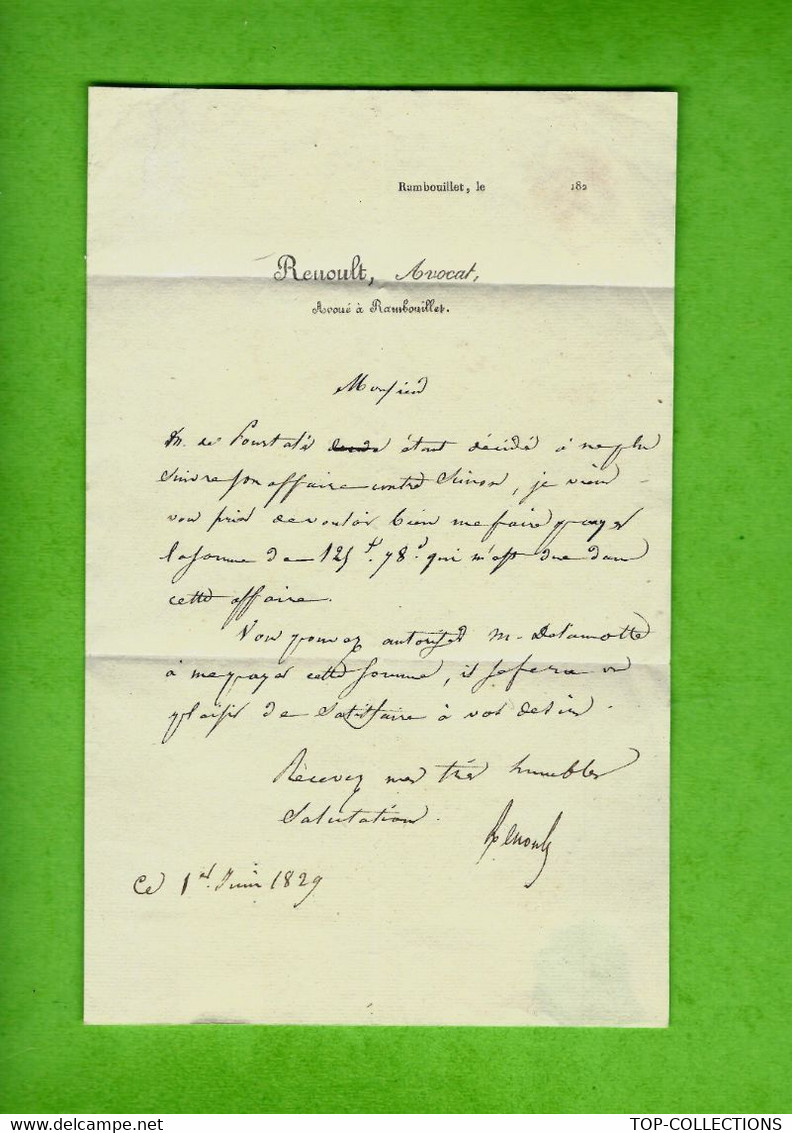 Rambouillet, le 182
Renoult, Avocat,
Avoué à Rambouillet.
Monsieur
M. de Pourtalès étant décidé à ne plus
suivre son affaire contre Simon, je viens
vous prier de vouloir bien me faire payer
la somme de 125 f. 78 c. qui m'est due dans
cette affaire.
Vous pouvez autoriser M. Delamotte
à me payer cette somme, il se fera un
plaisir de satisfaire à vos desirs.
Recevez mes très humbles
salutations.
Renoult
Ce 1er Juin 1829
TOP-COLLECTIONS